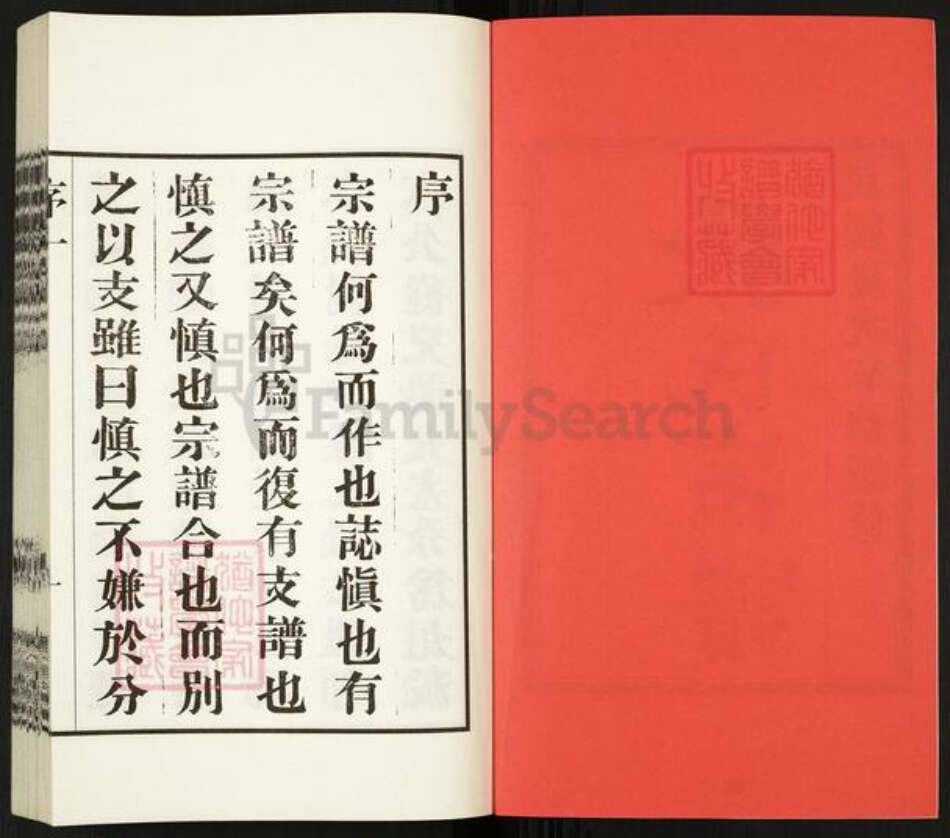 序
宗譜何爲而作也誌愼也有
宗譜矣何爲而復有支譜也
慎之又慎也宗譜合也而別
之以支雖曰慎之不嫌於分
序一
一
FamilySearch